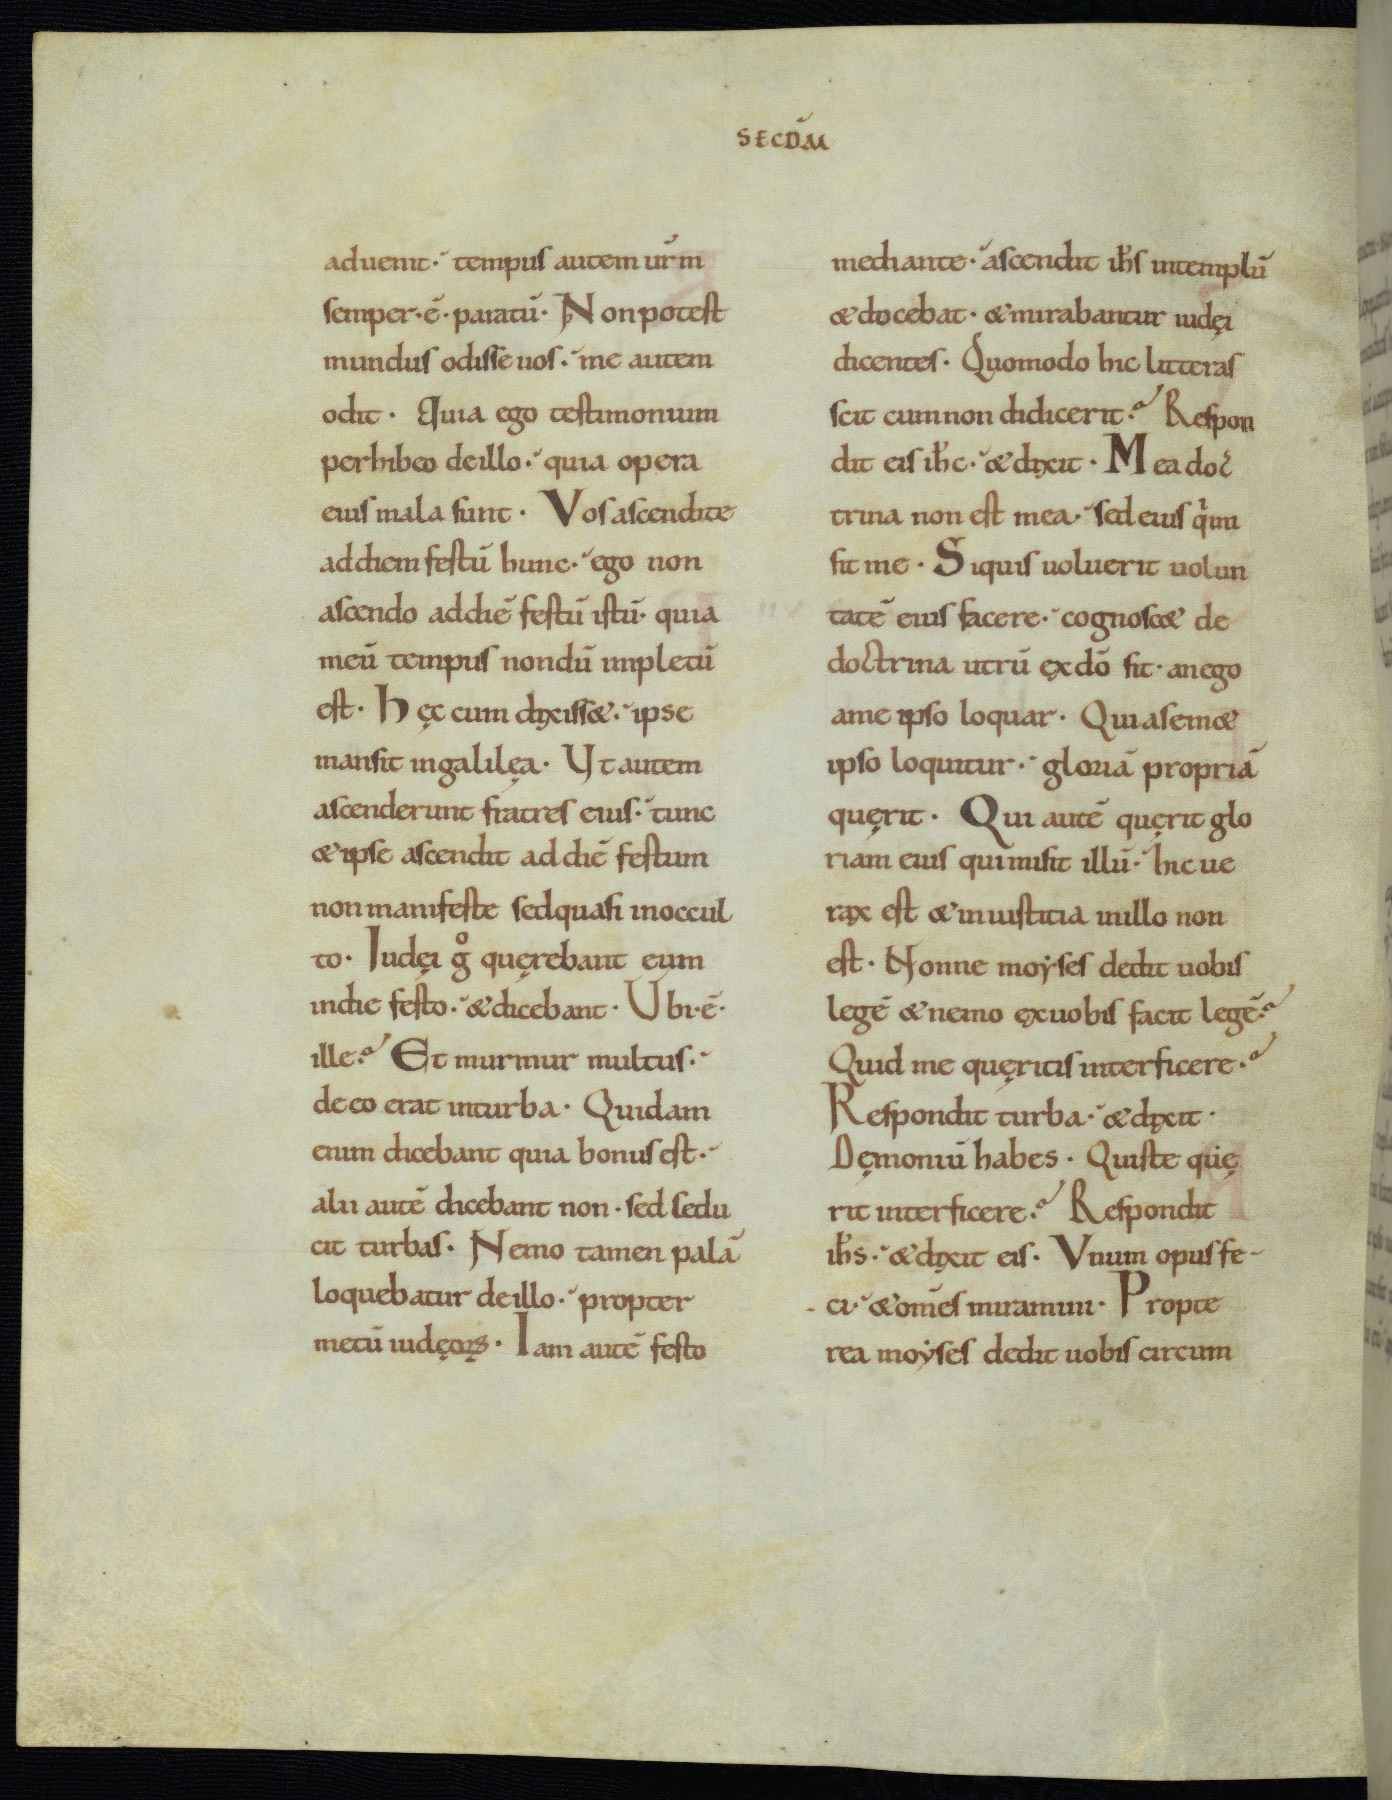 SECDM̄
aduenit· tempus autem ur̄m
semper·ē·paratū· Non potest
mundus odisse uos· me autem
odit· Quia ego testimonium
perhibeo de illo· quia opera
eius mala sunt· Vos ascendite
ad diem festū hunc· ego non
ascendo ad diē festū istū· quia
meū tempus nondū impletū
est· Hęc cum dixiss&· ipse
mansit in galilęa· Vt autem
ascenderunt fratres eius· tunc
& ipse ascendit ad diē festum
non manifeste sed quasi in occul
to· Iudęi gͦ quęrebant eum
in die festo· & dicebant· Vbi·ē·
ille? Et murmur multus·
de eo erat in turba· Quidam
enim dicebant quia bonus est·
alii autē dicebant non· sed sedu
cit turbas· Nemo tamen palā
loquebatur de illo· propter
metū iudęoꝝ· Iam autē festo
mediante· ascendit ih̄s in templū
& docebat· & mirabantur iudęi
dicentes· Quomodo hic litteras
scit cum non didicerit? Respon
dit eis ih̄c· & dixit· Mea doc
trina non est mea· sed eius qͥ mi
sit me· Siquis uoluerit uolun
tatē eius facere· cognosc& de
doctrina utrū ex dō sit· an ego
a me ipso loquar· Qui a sem&
ipso loquitur· gloriā propriā
quęrit· Qui autē quęrit glo
riam eius qui misit illū· hic ue
rax est & iniustitia in illo non
est· Nonne moẏses dedit uobis
legē & nemo ex uobis facit legē?
Quid me quęritis interficere?
Respondit turba· & dixit·
Dęmoniū habes· Quis te quę
rit interficere? Respondit
ih̄s· & dixit eis· Vnum opus fe-
ci· & om̄es miramini· Propte
rea moẏses dedit uobis circum